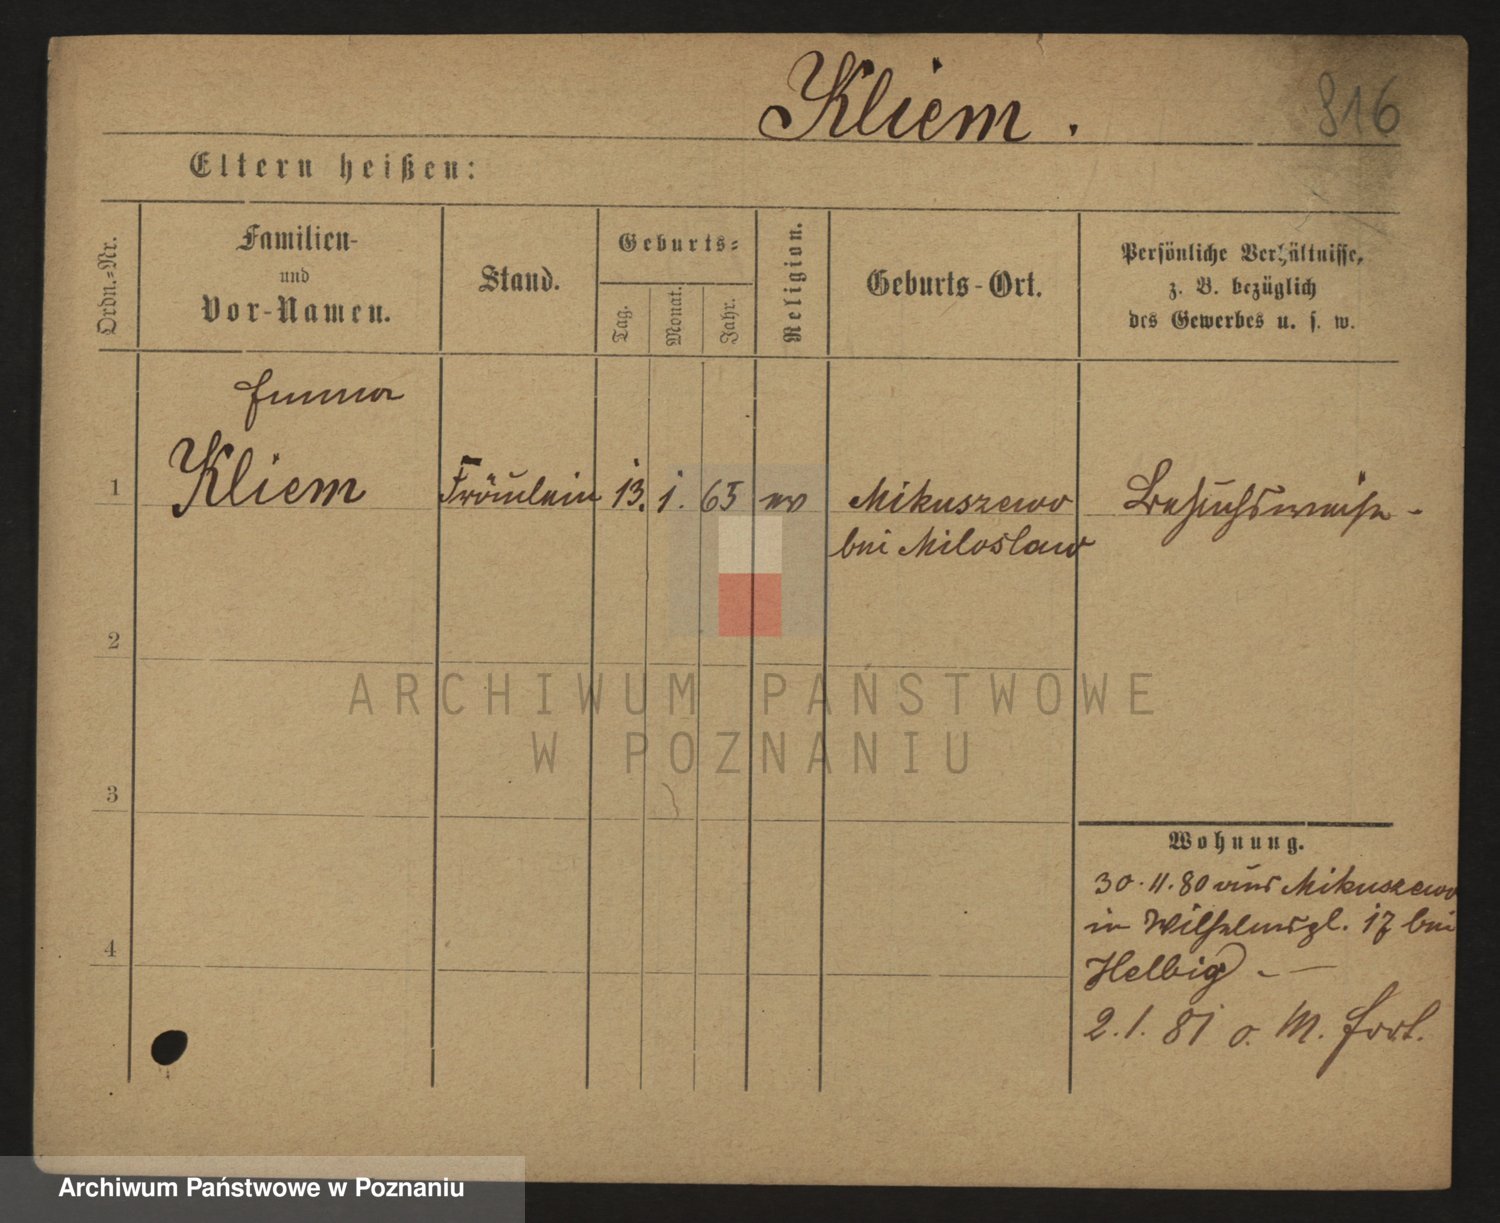 Kliem.
816
Eltern heißen:
Ordn.-Nr.
Familien-
und
Vor-Namen.
Stand.
Geburts-
Tag.
Monat.
Jahr.
Religion.
Geburts-Ort.
Persönliche Verhältnisse,
z. B. bezüglich
des Gewerbes u. s. w.
Emma
1 Kliem Fräulein 13. 1. 65 ev Mikuszewo Besuchsweise -
bei Miloslaw
2
3
4
Wohnung.
30.11.80 aus Mikuszewo
in Wilhelmspl. 17 bei
Helbig -
2.1.81 o. M. fort.
ARCHIWUM PAŃSTWOWE
W POZNANIU
Archiwum Państwowe w Poznaniu